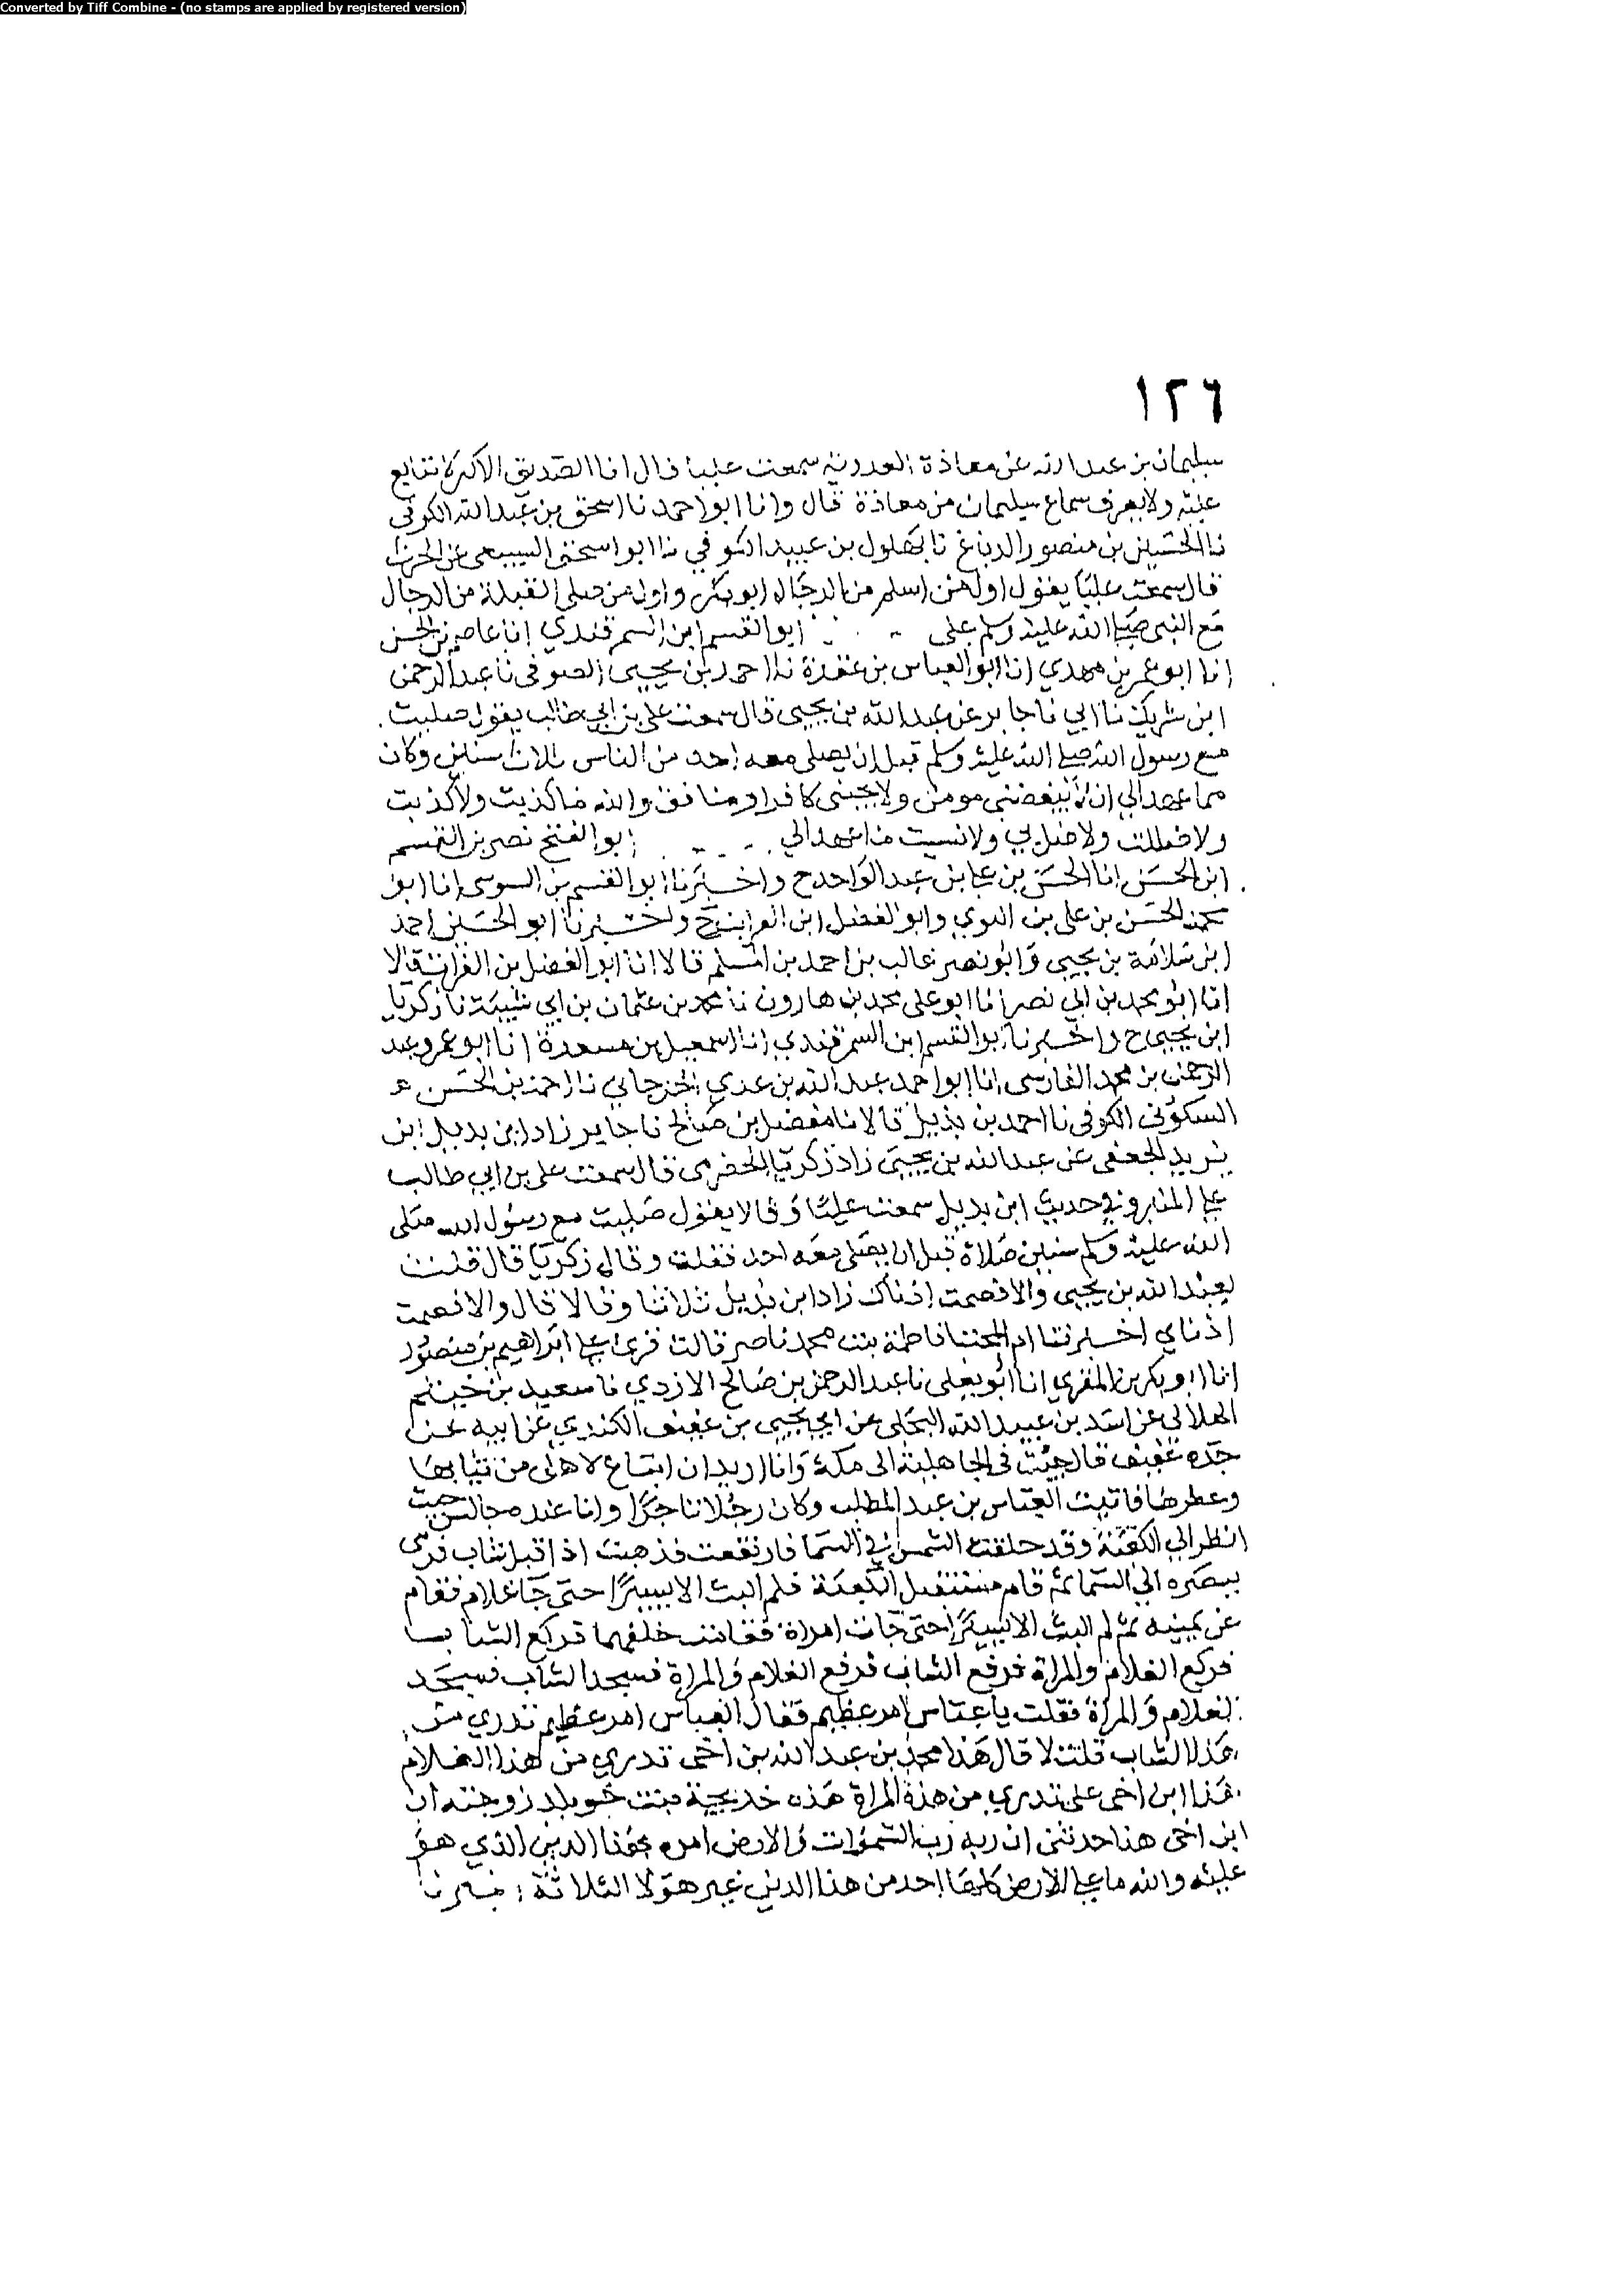 Converted by Tiff Combine - (no stamps are applied by registered version)
١٢٦
سليمان بن عبد الله عن معاذة العدوية سمعت عليا قال انا الصديق الاكبر لا يتابع
عليه ولا يعرف سماع سليمان من معاذة قال وانا ابو احمد نا اسحق بن عبد الله الكوفي
نا الحسين بن منصور الدباغ نا بهلول بن عبيد الكوفي نا ابو اسحق السبيعي عن الحرث
قال سمعت عليا يقول اول من اسلم من الرجال ابو بكر واول من صلى القبلة من الرجال
مع النبي صلى الله عليه وسلم على ابو القسم ابن السمرقندي انا عاصم بن الحسن
انا ابو عمر بن مهدي انا ابو العباس بن عقدة نا احمد بن يحيى الصوفي نا عبد الرحمن
ابن شريك نا ابي نا جابر عن عبد الله بن يحيى قال سمعت علي بن ابي طالب يقول صليت
مع رسول الله صلى الله عليه وسلم قبل ان يصلي معه احد من الناس ثلاث سنين وكان
مما عهد الي ان لا يبغضني مومن ولا يحبني كافر او منافق والله ما كذبت ولا كذبت
ولا ضللت ولا ضل بي ولا نسيت ما عهد الي ابو الفتح نصر بن القسم
ابن الحسن انا الحسن بن علي بن عبد الواحد ح واخبرنا ابو القسم بن السوسي انا ابو
محمد الحسن بن علي بن وابو الفضل ابن الفرات ح واخبرنا ابو الحسين احمد
ابن سلامة بن يحيى وابو نصر غالب بن احمد بن المسلم قالا انا ابو الفضل بن الفرات قالا
انا ابو محمد بن ابي نصر انا ابو علي محمد بن هارون نا محمد بن عثمان بن ابي شيبة نا زكريا
ابن يحيى ح واخبرنا ابو القسم ابن السمرقندي انا اسمعيل بن مسعدة انا ابو عمرو عبد
الرحمن بن محمد الفارسي انا ابو احمد عبد الله بن عدي الجرجاني نا احمد بن الحسن
السكوني الكوفي نا احمد بن بديل قالا نا مفضل بن صالح نا جابر زاد ابن بديل ابن
يزيد الجعفي عن عبد الله بن يحيى زاد زكريا الحضرمي قال سمعت علي بن ابي طالب
على المنابر وفي حديث ابن بديل سمعت عليا وقالا يقول صليت مع رسول الله صلى
الله عليه وسلم سنين صلاة قبل ان يصلي معه احد فقلت وقال زكريا قال قلت
لعبد الله بن يحيى والا فصمت اذناك زاد ابن بديل ثلاثا وقالا قال والا فصمت
اذناي اخبرتنا ام المجتبا فاطمة بنت محمد ناصر قالت قرئ على ابراهيم بن منصور
انا ابو بكر بن المقري انا ابو يعلى نا عبد الرحمن بن صالح الازدي نا سعيد بن خيثم
الهلالي عن اسد بن عبيد الله البجلي عن ابي يحيى بن عفيف الكندي عن ابيه عن
جده عفيف قال جئت في الجاهلية الى مكة وانا اريد ان ابتاع لاهلي من ثيابها
وعطرها فاتيت العباس بن عبد المطلب وكان رجلا تاجرا وانا عنده جالس حيث
انظر الى الكعبة وقد حلقت الشمس في السما فارتفعت فذهبت اذ اقبل شاب فرمى
ببصره الى السما ثم قام مستقبل الكعبة فلم البث الا يسيرا حتى جا غلام فقام
عن يمينه ثم لم البث الا يسيرا حتى جات امراة فقامت خلفهما فركع الشاب
فركع الغلام والمراة فرفع الشاب فرفع الغلام والمراة فسجد الشاب فسجد
الغلام والمراة فقلت يا عباس امر عظيم فقال العباس امر عظيم تدري من
هذا الشاب قلت لا قال هذا محمد بن عبد الله بن اخي تدري من هذا الغلام
هذا ابن اخي علي تدري من هذه المراة هذه خديجة بنت خويلد زوجته ان
ابن اخي هذا حدثني ان ربه رب السموات والارض امره بهذا الدين الذي هو
عليه والله ما على الارض كلها احد من هذا الدين غير هولا الثلاثة اخبرنا